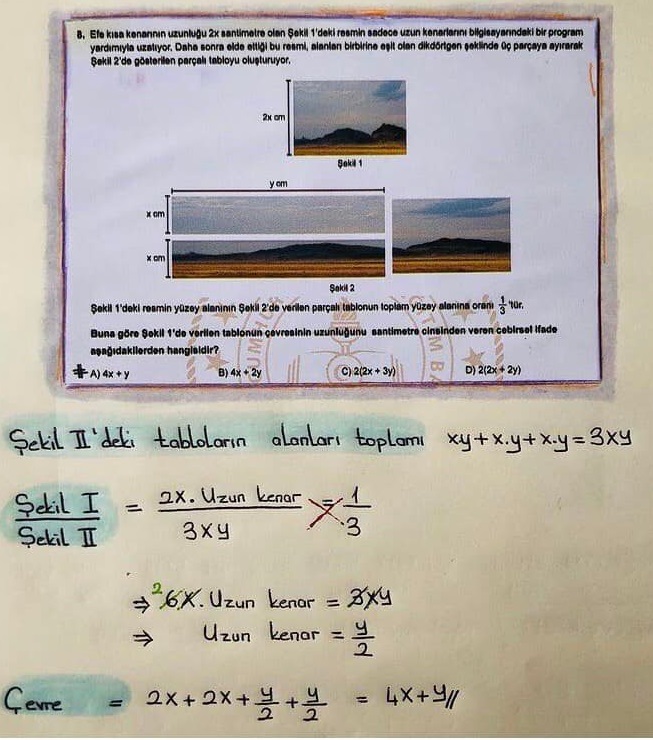 8. Efe kısa kenarının uzunluğu 2x santimetre olan Şekil 1'deki resmin sadece uzun kenarlarını bilgisayarındaki bir program
yardımıyla uzatıyor. Daha sonra elde ettiği bu resmi, alanları birbirine eşit olan dikdörtgen şeklinde üç parçaya ayırarak
Şekil 2'de gösterilen parçalı tabloyu oluşturuyor.
2x cm
Şekil 1
y cm
x cm
x cm
Şekil 2
Şekil 1'deki resmin yüzey alanının Şekil 2'de verilen parçalı tablonun toplam yüzey alanına oranı 1/3 'tür.
Buna göre Şekil 1'de verilen tablonun çevresinin uzunluğunu santimetre cinsinden veren cebirsel ifade
aşağıdakilerden hangisidir?
A) 4x + y B) 4x + 2y C) 2(2x + 3y) D) 2(2x + 2y)
Şekil II'deki tabloların alanları toplamı xy+x.y+x.y=3xy
Şekil I / Şekil II = 2x. Uzun kenar / 3xy = 1/3
⇒ 2 6x. Uzun kenar = 3xy
⇒ Uzun kenar = y/2
Çevre = 2x + 2x + y/2 + y/2 = 4x+y//